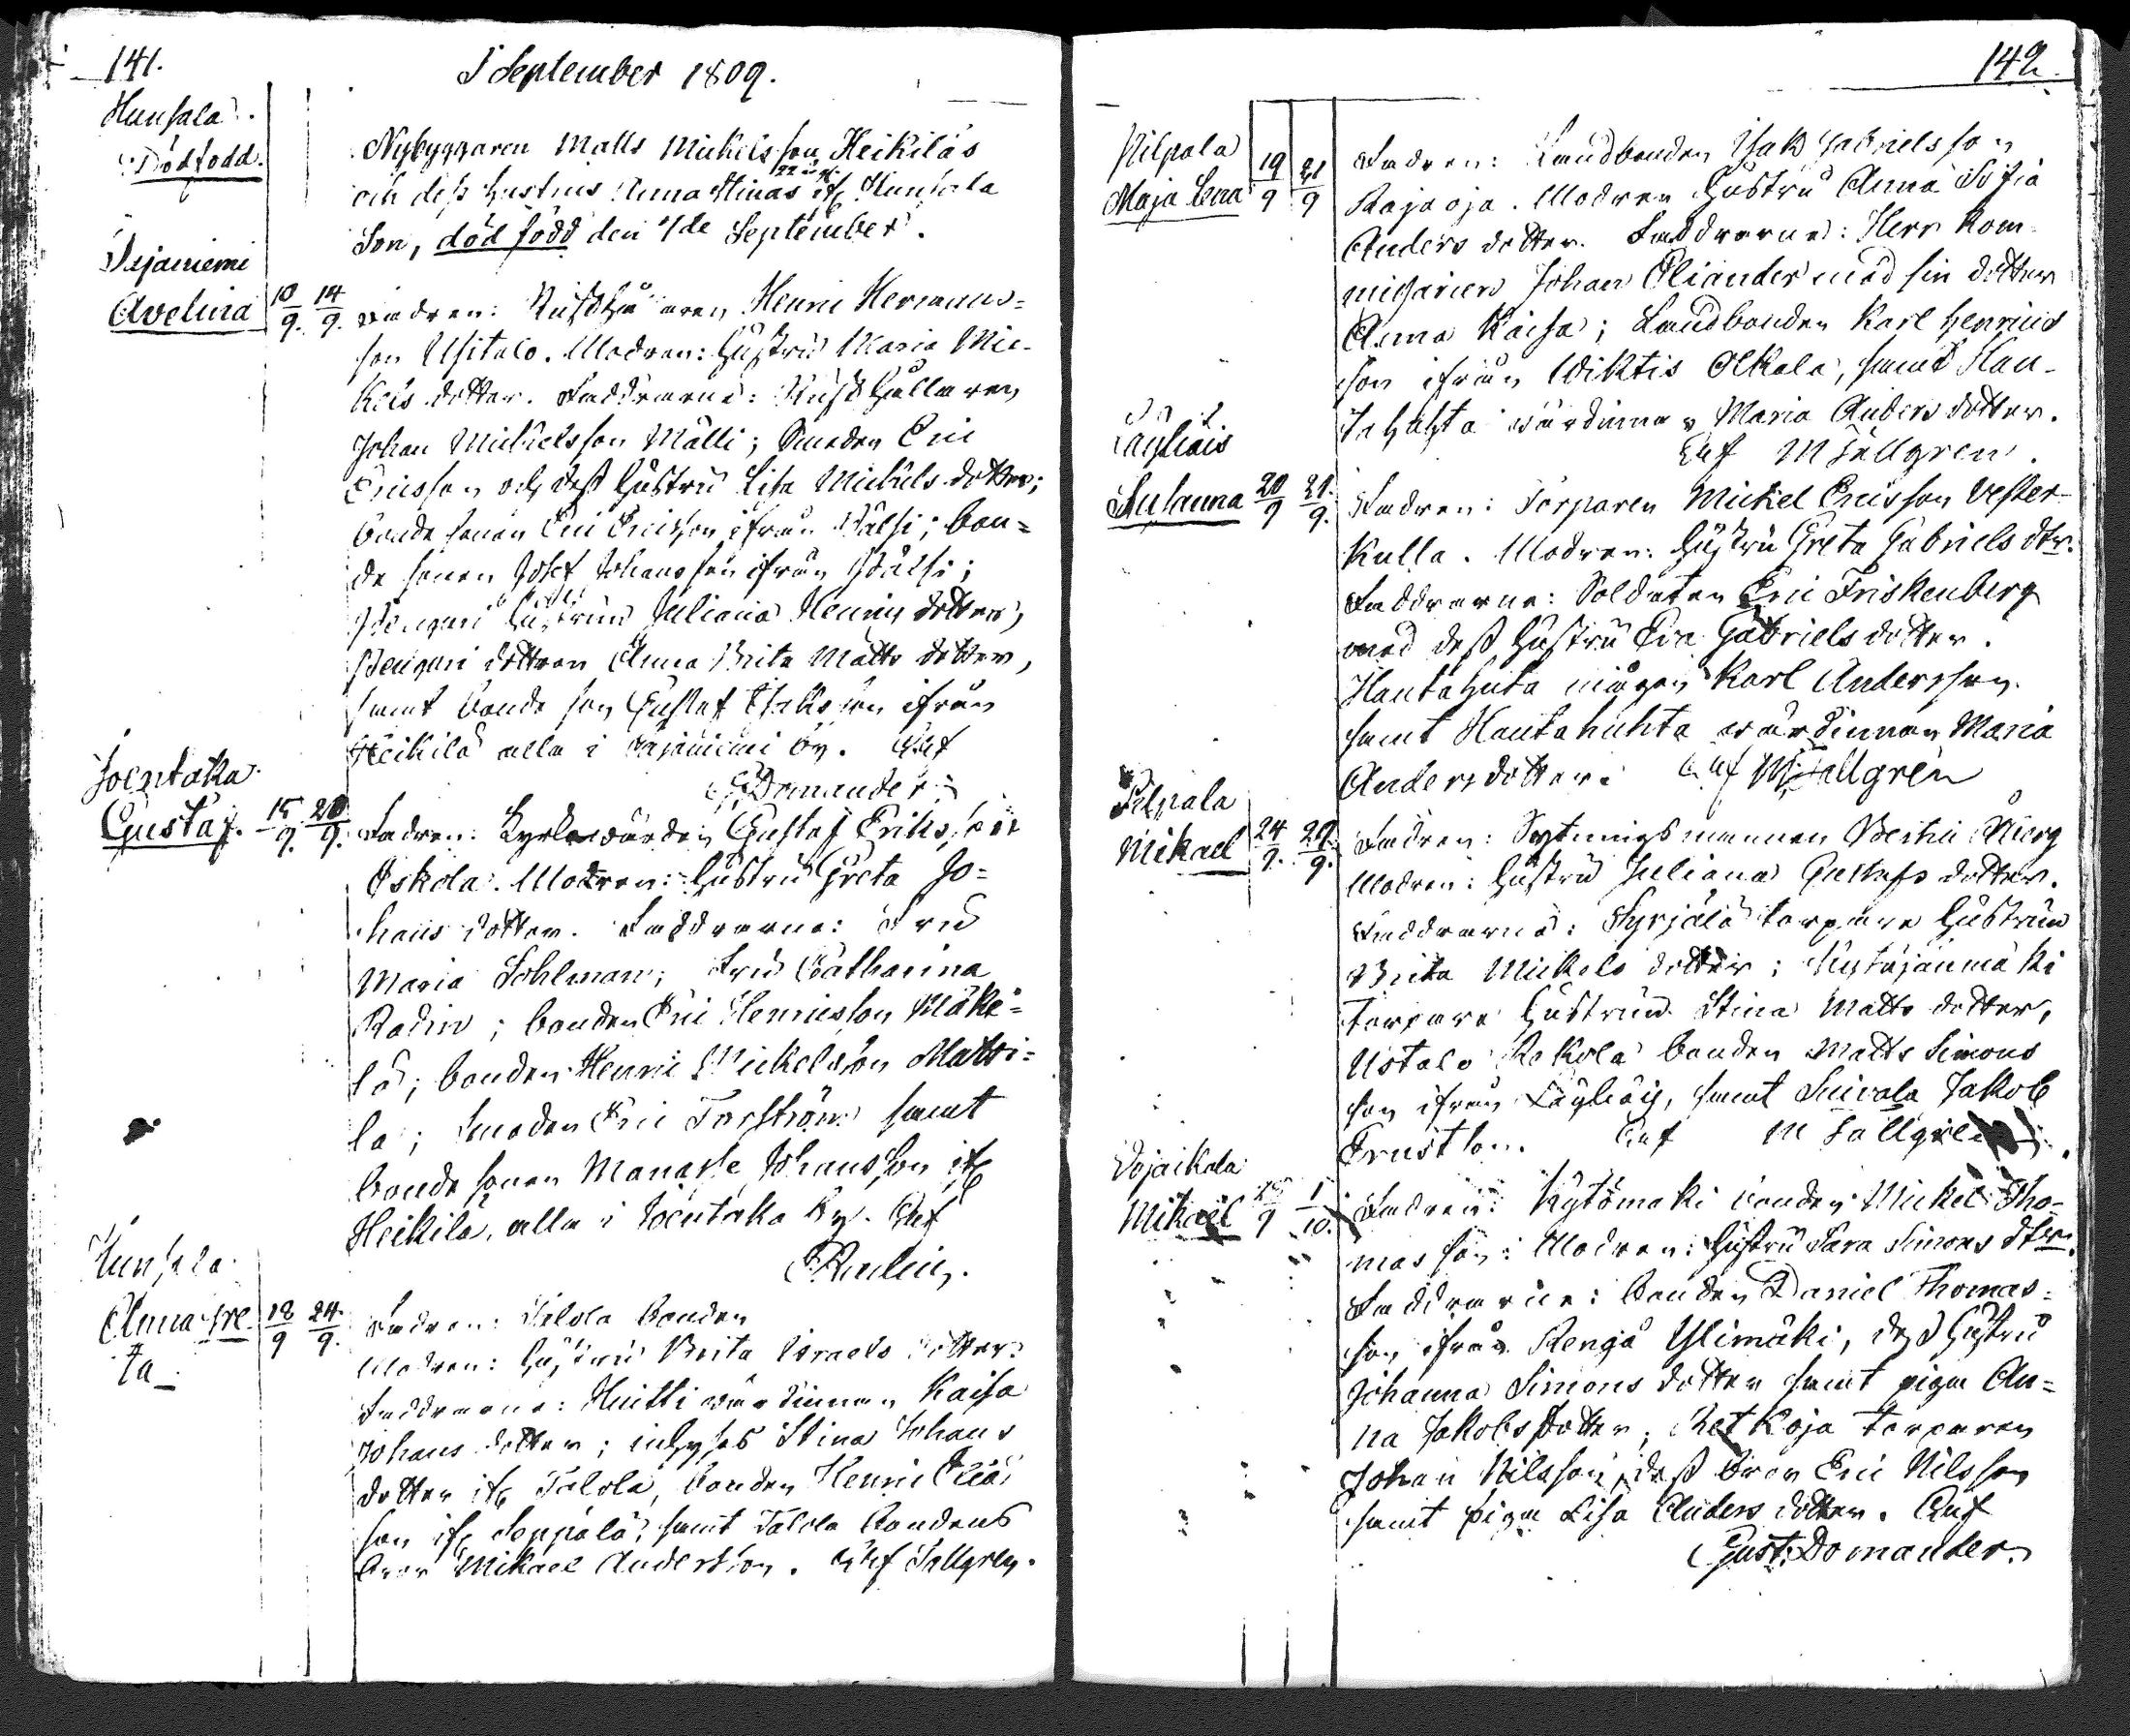 141.
I September 1809.
Hunsala.
Dödfödd.
Nybyggaren Matts Mickelsson Heikiläs
och dess hustrus Anna Stinas 22 år gl. ifr. Hunsala
Son, död född den 1/de September.
Avelina 10/9. 14/9.
Fadren: Rusthållaren Henric Hermans=
son Usitalo. Modren: Hustru Maria Mic-
kels dotter. Faddrarne: Rusthållaren
Johan Michelsson Mälli; Smeden Eric
Ericsson och dess hustru Lisa Michels dotter;
bonde sonen Eric Ericsson ifrån Pälsi; bon=
de sonen Josef Johansson ifrån Pälsi;
hustrun Juliana Henrics dotter,
dottren Anna Brita Matts dotter,
samt bonde son Gustaf Isaksson ifrån
Heikilä alla i Pajaniemi by. Chr af
G. Domander.
Joentaka
Gustaf. 15/9. 20/9.
Fadren: Kyrkovärden Gustaf Eriksson
Eskola. Modren: Hustru Greta Jo=
hans dotter. Faddrarne: Fru
Maria Sohlman; Fru Catharina
Rodin; bonden Eric Henricsson Mäke=
lä; bonden Henric Mickelsson Matti=
la; Smeden Eric Forström samt
bonde sonen Manasse Johansson ifr
Heikilä, alla i Joentaka by. Chr af
Paulin.
Hunsala
Anna Gre- 18/9 24/9.
ta_
Fadren: Talola bonden
Modren: Hustru Brita Israels dotter.
Faddrarne: Huitti värdinnan Kaisa
Johans dotter; inhyses Stina Johans
dotter ifr Talola, bonden Henric Elias
son ifr Seppälä; samt Talola bondens
bror Mikael Andersson. Chr af Tallgren.
142.
Pilpala
Maja Lena 19/9 21/9
Fadren: Landbonden Isak Gabrielsson
Rajaoja. Modren Hustru Anna Sofia
Anders dotter. Faddrarne: Herr Kom-
missarien Johan Eliander med sin dotter
Anna Kaisa; Landbonden Karl Henrics
son ifrån Wiktis Olkala, samt Hau-
tahuhta värdinnan Maria Anders dotter.
Chr af M Tallgren.
Läyliäis
Susanna 20/9 21/9.
Fadren: Torparen Mickel Ericsson Vester-
kulla. Modren: Hustru Greta Gabriels dtr.
Faddrarne: Soldaten Eric Friskenberg
med dess hustru Eva Gabriels dotter.
Hautahuta mågen Karl Andersson.
samt Hautahuhta värdinnan Maria
Anders dotter. Chr af M Tallgren
Pilpala
Mikael 24/9. 29/9.
Fadren: Sytningsmannen Bertil Nierg
Modren: Hustru Juliana Gustafs dotter.
Faddrarne: Syrjälä torpare hustrun
Brita Mickels dotter; Kytäjänmäki
Torpare hustrun Stina Matts dotter,
Ustalo Rekola bonden Matts Simons
son ifrån Läyliäis, samt Suivala Jakob
Ernstson. Chr af M Tallgren.
Vojaikala
Mikael 25/9 1/10.
Fadren: Kytömäki bonden Mickel Tho-
mas son: Modren: Hustru Sara Simons dtr.
Faddrarne: bonden Daniel Thomas=
son ifrån Rengå Ylimäki, dess hustru
Johanna Simons dotter samt pigan An=
na Jakobs dotter; Retkoja torparen
Johan Nilsson, dess bror Eric Nilsson
samt pigan Lisa Anders dotter. Chr af
Gust. Domander.